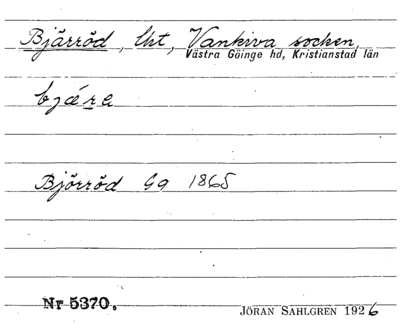 Bjärröd, lht, Vankiva socken,
Västra Göinge hd, Kristianstad län
bjæ̀ra
Björröd Gg 1865
Nr 5370.
JÖRAN SAHLGREN 1926